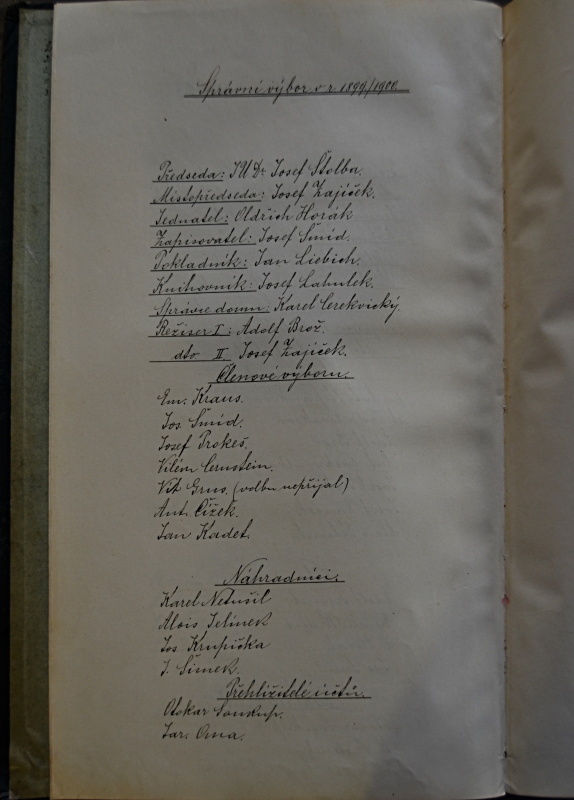 Správní výbor v r. 1899/1900
Předseda: JUDr Josef Štolba.
Místopředseda: Josef Zajíček.
Jednatel: Oldřich Horák
Zapisovatel: Josef Šmíd.
Pokladník: Jan Liebich.
Knihovník: Josef Lahulek.
Správce domu: Karel Cerekvický.
Režiser I: Adolf Brož.
dto II Josef Zajíček.
Členové výboru.
Em. Kraus.
Jos. Šmíd.
Josef Prokeš.
Vilém Cernstein.
Vít Grus. (volbu nepřijal)
Ant. Čížek.
Jan Kadet.
Náhradníci.
Karel Netušil
Alois Jelínek
Jos Krupička
J. Šimek.
Přehlížitelé účtů.
Otokar Soukup.
Jar.